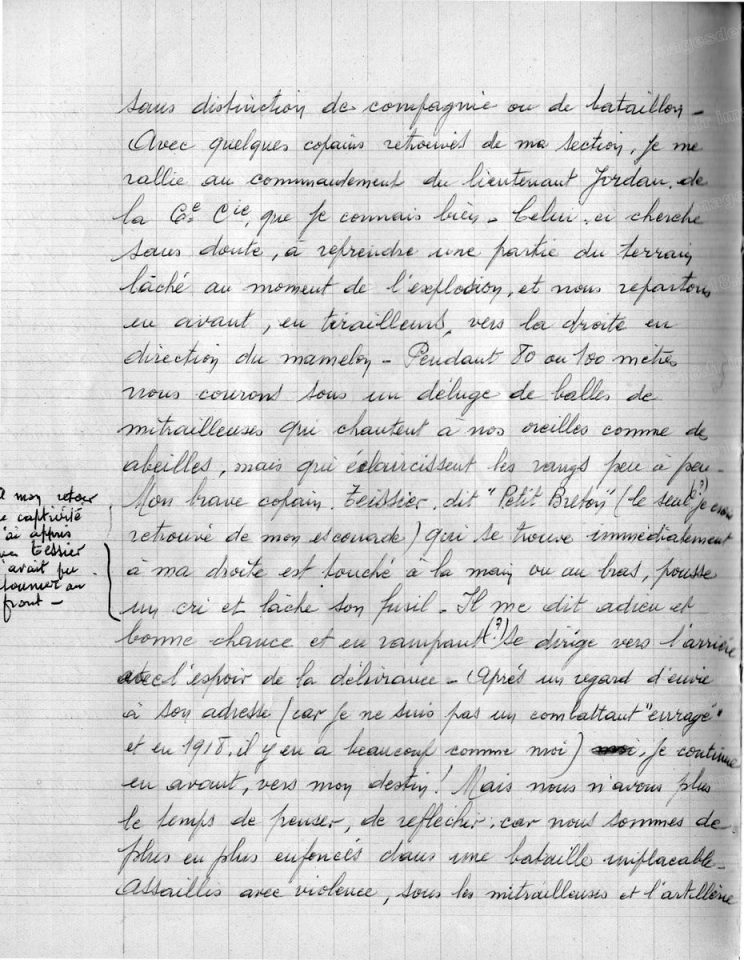 sans distinction de compagnie ou de bataillon –
Avec quelques copains retrouvés de ma section, je me
rallie au commandement du lieutenant Jordan, de
la 6e Cie, que je connais bien – Celui-ci cherche
sans doute, à reprendre une partie du terrain
lâché au moment de l'explosion, et nous repartons
en avant, en tirailleurs, vers la droite en
direction du mamelon – Pendant 80 ou 100 mètres
nous courons sous un déluge de balles de
mitrailleuses qui chantent à nos oreilles comme des
abeilles, mais qui éclaircissent les rangs peu à peu –
Mon brave copain Teissier, dit "Petit Breton" (le seul (?) je crois
retrouvé de mon escouade) qui se trouve immédiatement
à ma droite est touché à la main ou au bras, pousse
un cri et lâche son fusil – Il me dit adieu et
bonne chance et en rampant (?) se dirige vers l'arrière
avec l'espoir de la délivrance – Après un regard d'envie
à son adresse (car je ne suis pas un combattant "enragé"
et en 1918, il y en a beaucoup comme moi), je continue
en avant, vers mon destin! Mais nous n'avons plus
le temps de penser, de réflechir, car nous sommes de
plus en plus enfoncés dans une bataille implacable –
Assaillis avec violence, sous les mitrailleuses et l'artillerie
A mon retour
de captivité
j'ai appris
que Tessier
avait pu
retourner au
front –